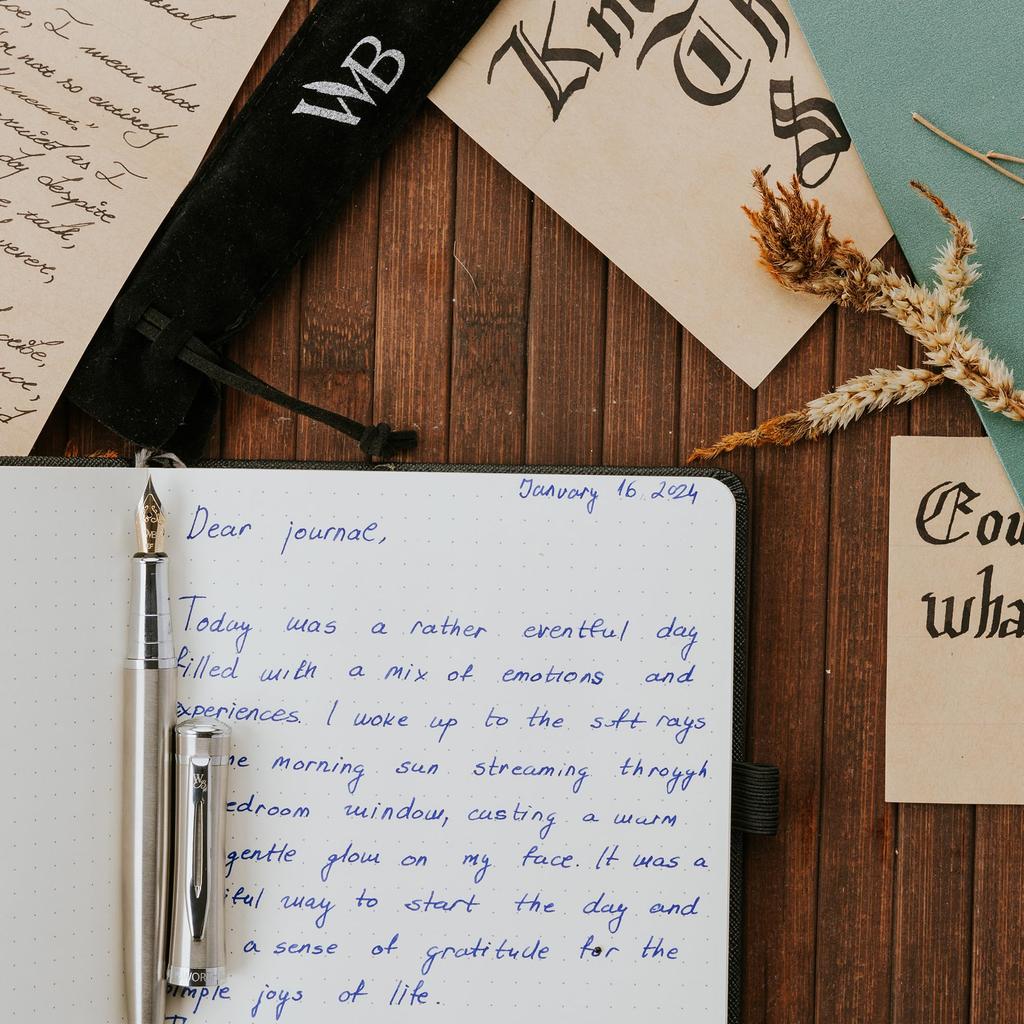 I mean that
not so entirely
meant."
as I
day despite
talk,
WB
Th
S
January 16 2024
Dear journal,
Today was a rather eventful day
filled with a mix of emotions and
experiences. I woke up to the soft rays
morning sun streaming throygh
window, casting a warm
gentle glow on my face. It was a
way to start the day and
a sense of gratitude for the
simple joys of life.
WB
Cou
wha